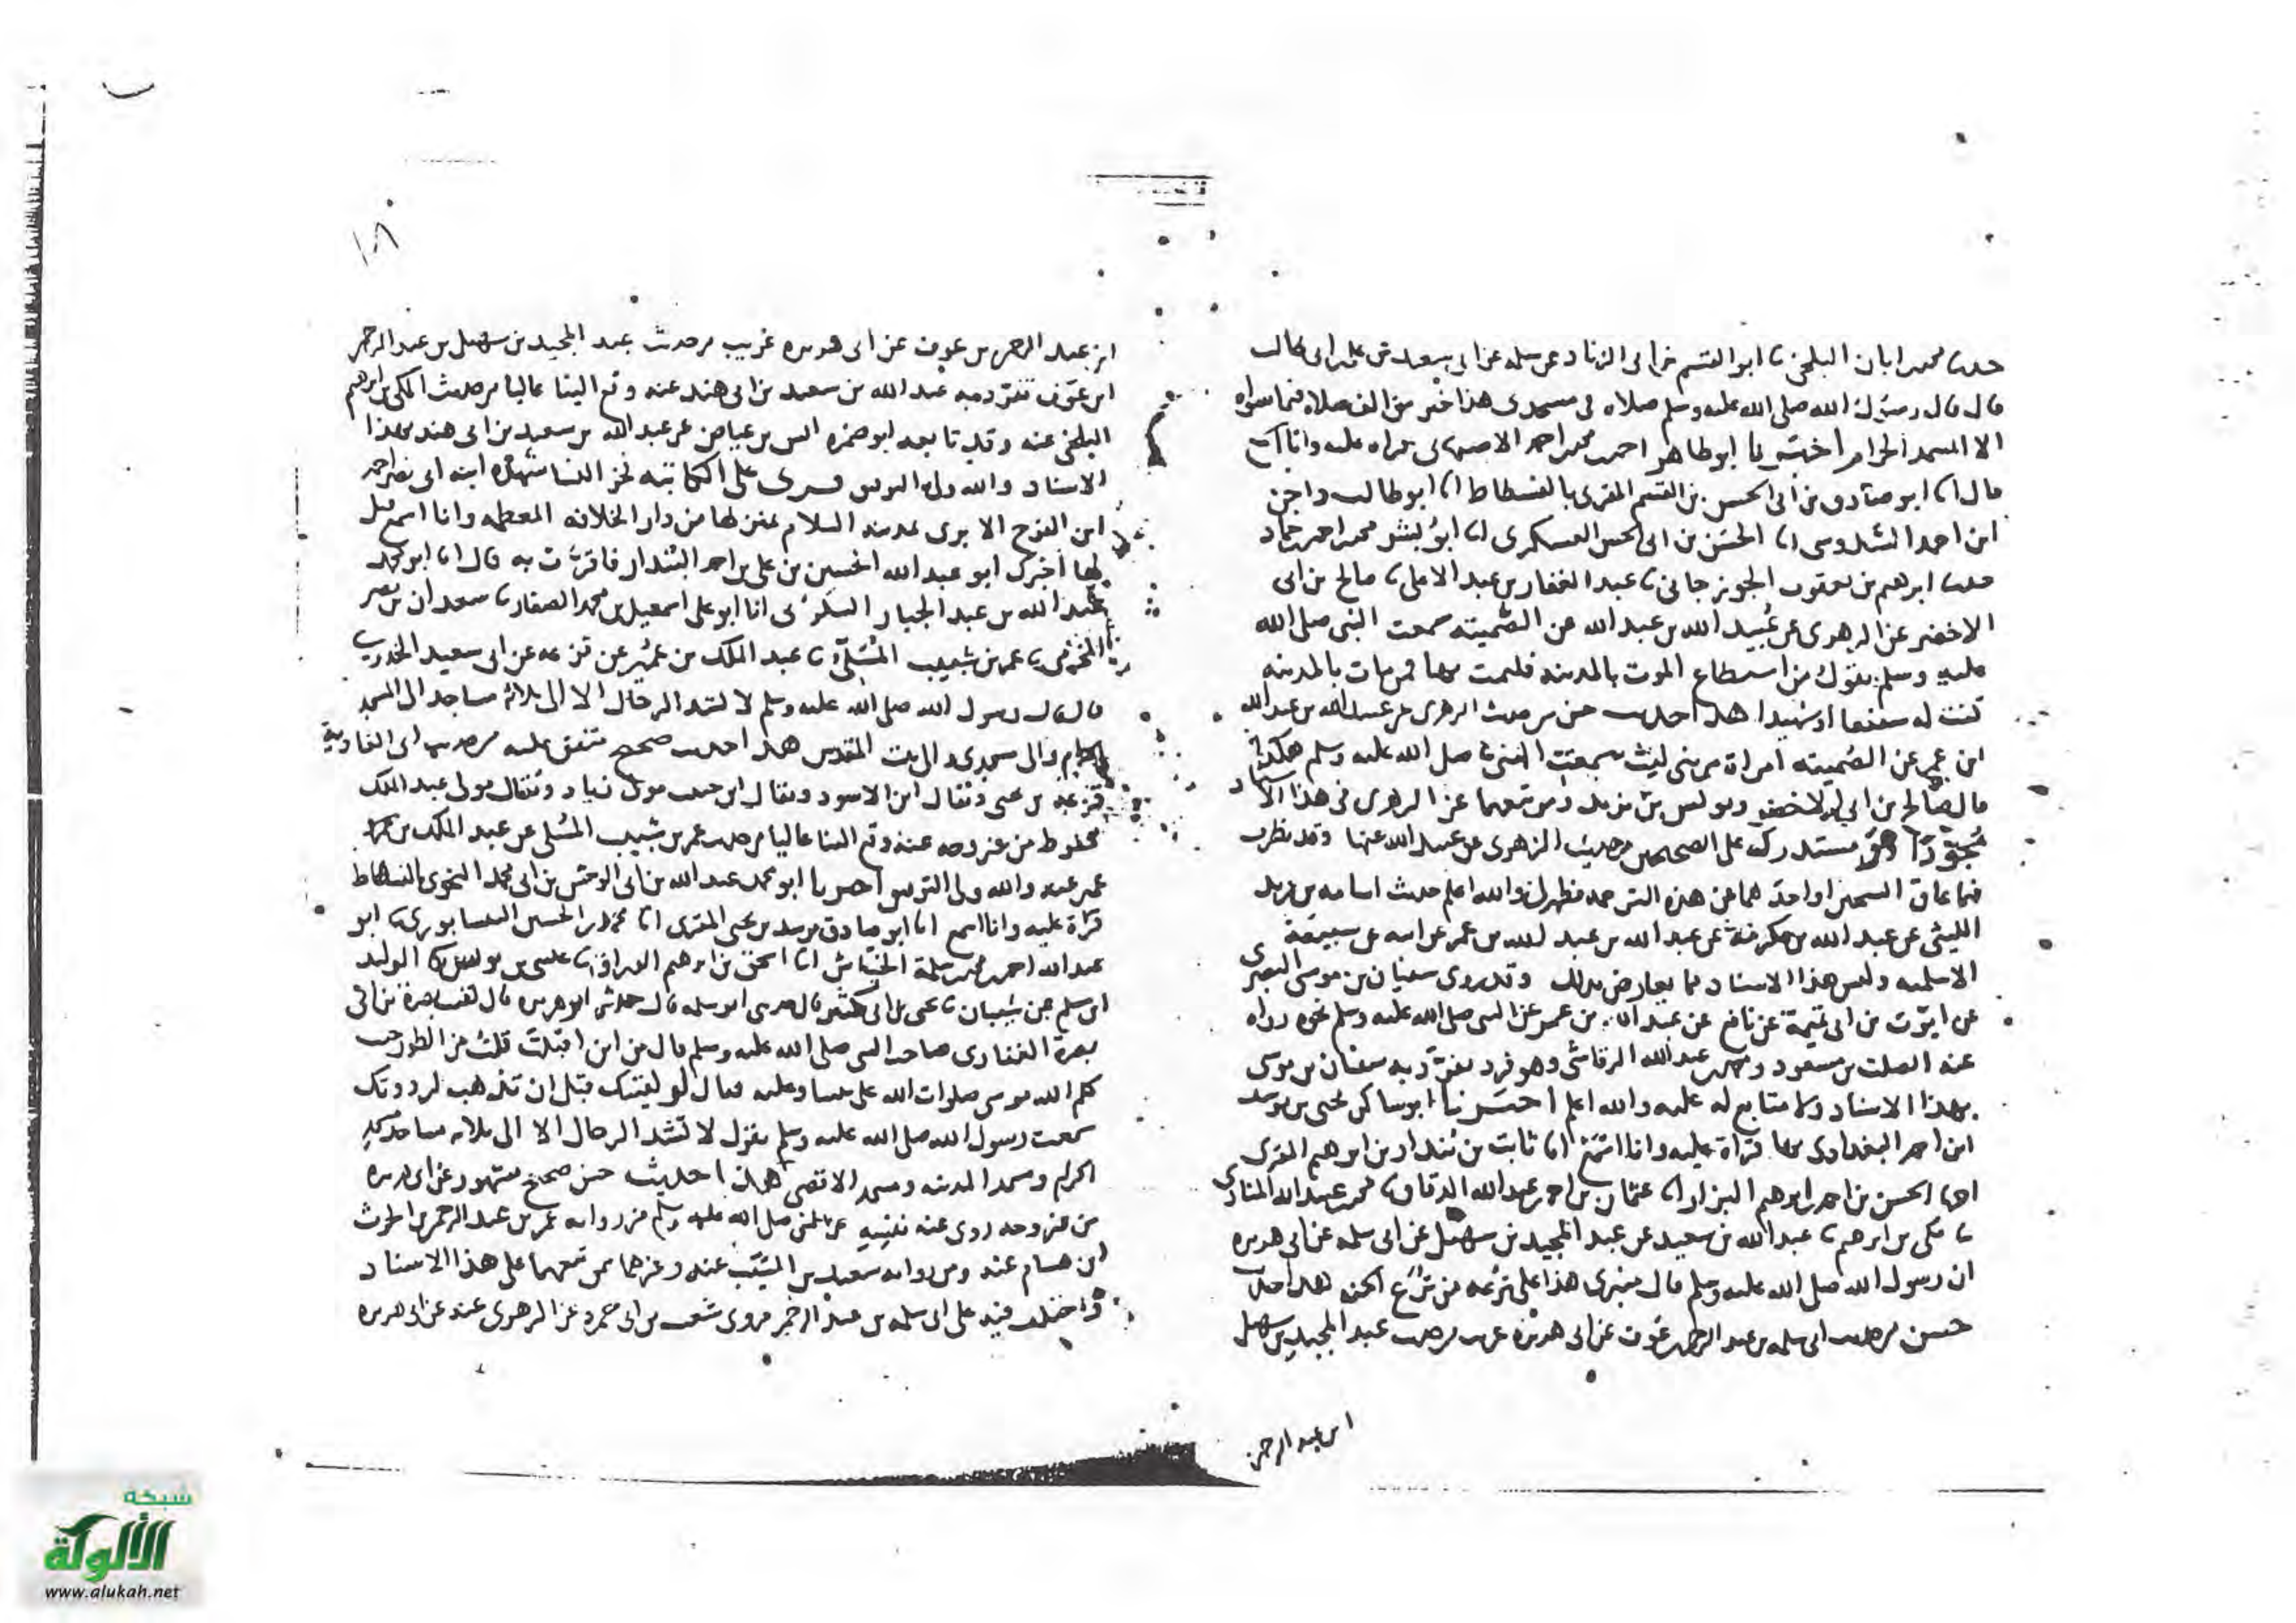 حدثنا محمد بن ابان البلخي ثنا ابو القسم بن ابي الزناد عن سلمه عن ابي سعيد عن علي بن ابي طالب
قال قال رسول الله صلى الله عليه وسلم صلاه في مسجدي هذا خير من الف صلاه فيما سواه
الا المسجد الحرام اخبرنا ابو طاهر احمد بن محمد بن احمد الاصبهاني قراه عليه وانا اسمع
قال انا ابو صادق بن ابي الحسن بن القسم المقري بالفسطاط انا ابو طالب
ابن احمد السدوسي انا الحسن بن ابي الحسن العسكري انا ابو بشر محمد بن احمد بن حماد
حدثنا ابرهيم بن يعقوب الجوزجاني ثنا عبد الغفار بن عبد الاعلى ثنا صالح بن ابي
الاخضر عن الزهري عن عبيد الله بن عبد الله عن الصميته سمعت النبي صلى الله
عليه وسلم يقول من استطاع الموت بالمدينه فليمت بها فمن مات بالمدينه
كنت له شفيعا او شهيدا هذا حديث حسن من حديث الزهري عن عبيد الله بن عبد الله
ابن عمر عن الصميته امراة من بني ليث سمعت النبي صلى الله عليه وسلم هكذا
قال صالح بن ابي الاخضر ويونس بن يزيد ومن تبعهما عن الزهري في هذا الاسناد
مجودا وهو مستدرك على الصحيحين من حديث الزهري عن عبيد الله عنها وقد نظرت
فيما عاق الشيخين او احدهما عن هذه الترجمه فظهر لي والله اعلم حديث اسامه بن زيد
الليثي عن عبد الله بن عكرمة عن عبد الله بن عبد الله بن عمر عن ابيه عن سبيعة
الاسلميه وليس هذا الاسناد مما يعارض بذلك وقد روى سفيان بن موسى البصري
عن ايوب بن ابي تميمة عن نافع عن عبد الله بن عمر عن النبي صلى الله عليه وسلم نحوه رواه
عنه الصلت بن مسعود ومحمد بن عبد الله الرقاشي وهو فرد تفرد به سفيان بن موسى
بهذا الاسناد ولا متابع له عليه والله اعلم اخبرنا ابو شاكر يحيى بن يوسف
ابن احمد البغدادي بها قراة عليه وانا اسمع انا ثابت بن بندار بن ابرهيم المقري
انا الحسن بن احمد بن ابرهيم البزاز انا عثمان بن احمد بن عبد الله الدقاق ثنا محمد بن عبيد الله المنادي
ثنا مكي بن ابرهيم ثنا عبد الله بن سعيد عن عبد المجيد بن سهيل عن ابي سلمه عن ابي هريره
ان رسول الله صلى الله عليه وسلم قال منبري هذا على ترعه من ترع الجنه هذا حديث
حسن من حديث ابي سلمه بن عبد الرحمن بن عوف عن ابي هريره غريب من حديث عبد المجيد بن سهيل
ابن عبد الرحمن
١٨
ابن عبد الرحمن بن عوف عن ابي هريره غريب من حديث عبد المجيد بن سهيل بن عبد الرحمن
ابن عوف تفرد به عبد الله بن سعيد بن ابي هند عنه وقع الينا عاليا من حديث المكي بن ابرهيم
البلخي عنه وقد تابعه ابو ضمره انس بن عياض عن عبد الله بن سعيد بن ابي هند بهذا
الاسناد والله ولي التوفيق قرى على الكاتبه فخر النسا شهدة ابنه ابي نصر احمد
ابن الفرج الابري بمدينه السلام بمنزلها من دار الخلافه المعظمه وانا اسمع قيل
لها اخبرك ابو عبد الله الحسين بن علي بن احمد البندار فاقرت به قال انا ابو محمد
عبد الله بن عبد الجبار السكري انا ابو علي اسمعيل بن محمد الصفار ثنا سعدان بن نصر
المخرمي ثنا عمر بن شبيب المسلي ثنا عبد الملك بن عمير عن قزعه عن ابي سعيد الخدري
قال قال رسول الله صلى الله عليه وسلم لا تشد الرحال الا الى ثلاثة مساجد الى المسجد
الحرام والى مسجدي والى بيت المقدس هذا حديث صحيح متفق عليه من حديث ابي الغادية
قزعه بن يحيى ويقال ابن الاسود ويقال مولى زياد ويقال مولى عبد الملك
محفوظ من غير وجه عنه وقع الينا عاليا من حديث عمر بن شبيب المسلي عن عبد الملك بن عمير
عنه والله ولي التوفيق اخبرنا ابو محمد عبد الله بن ابي الوحش بن ابي محمد النحوي بالفسطاط
قراة عليه وانا اسمع انا ابو صادق مرشد بن يحيى المقري انا محمد بن الحسين النيسابوري ثنا ابو
عبد الله احمد بن محمد بن سلمة الخياش انا اسحق بن ابرهيم ثنا عيسى بن يونس ثنا الوليد
ابن مسلم عن شيبان ثنا يحيى بن ابي كثير قال حدثني ابو سلمه قال حدثني ابو هريره قال لقيت بصرة بن ابي
بصرة الغفاري صاحب النبي صلى الله عليه وسلم قال من اين اقبلت قلت من الطور حيث
كلم الله موسى صلوات الله على نبينا وعليه فقال لو لقيتك قبل ان تذهب لرددتك
سمعت رسول الله صلى الله عليه وسلم يقول لا تشد الرحال الا الى ثلاثه مساجد مسجد
الحرام ومسجد المدينه ومسجد الاقصى هذا حديث حسن صحيح مشهور عن ابي هريره
من غير وجه روي عنه عن النبي صلى الله عليه وسلم من روايه عمر بن عبد الرحمن بن الحرث
ابن هشام عنه ومن روايه سعيد بن المسيب عنه وغيرهما ممن تبعهما على هذا الاسناد
واختلف فيه على ابي سلمه بن عبد الرحمن فروى شعيب بن ابي حمزه عن الزهري عنه عن ابي هريره
شبكة
الألوكة
www.alukah.net